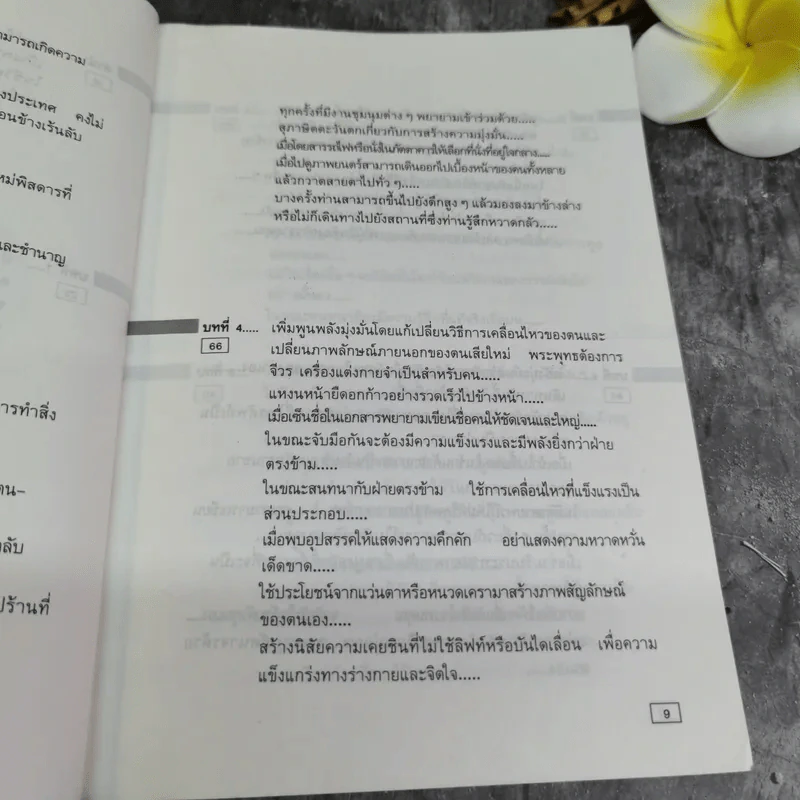 ามารถเกิดความ
งประเทศ คงไม่
อนข้างเร้นลับ
หม่พิสดารที่
และชำนาญ
การทำสิ่ง
ตน-
งลับ
ปร้านที่
ทุกครั้งที่มีงานชุมนุมต่าง ๆ พยายามเข้าร่วมด้วย.....
สุภาษิตตะวันตกเกี่ยวกับการสร้างความมุ่งมั่น.....
เมื่อโดยสารรถไฟหรือนั่งในภัตตาคารให้เลือกที่นั่งที่อยู่ใจกลาง.....
เมื่อไปดูภาพยนตร์สามารถเดินออกไปเบื้องหน้าของคนทั้งหลาย
แล้วกวาดสายตาไปทั่ว ๆ.....
บางครั้งท่านสามารถขึ้นไปยังตึกสูง ๆ แล้วมองลงมาข้างล่าง
หรือไม่ก็เดินทางไปยังสถานที่ซึ่งท่านรู้สึกหวาดกลัว.....
บทที่ 4..... เพิ่มพูนพลังมุ่งมั่นโดยแก้เปลี่ยนวิธีการเคลื่อนไหวของตนและ
66 เปลี่ยนภาพลักษณ์ภายนอกของตนเสียใหม่ พระพุทธต้องการ
จีวร เครื่องแต่งกายจำเป็นสำหรับคน.....
แหงนหน้ายืดอกก้าวอย่างรวดเร็วไปข้างหน้า.....
เมื่อเซ็นชื่อในเอกสารพยายามเขียนชื่อคนให้ชัดเจนและใหญ่.....
ในขณะจับมือกันจะต้องมีความแข็งแรงและมีพลังยิ่งกว่าฝ่าย
ตรงข้าม.....
ในขณะสนทนากับฝ่ายตรงข้าม ใช้การเคลื่อนไหวที่แข็งแรงเป็น
ส่วนประกอบ.....
เมื่อพบอุปสรรคให้แสดงความคึกคัก อย่าแสดงความหวาดหวั่น
เด็ดขาด.....
ใช้ประโยชน์จากแว่นตาหรือหนวดเครามาสร้างภาพสัญลักษณ์
ของตนเอง.....
สร้างนิสัยความเคยชินที่ไม่ใช้ลิฟท์หรือบันไดเลื่อน เพื่อความ
แข็งแกร่งทางร่างกายและจิตใจ.....
9